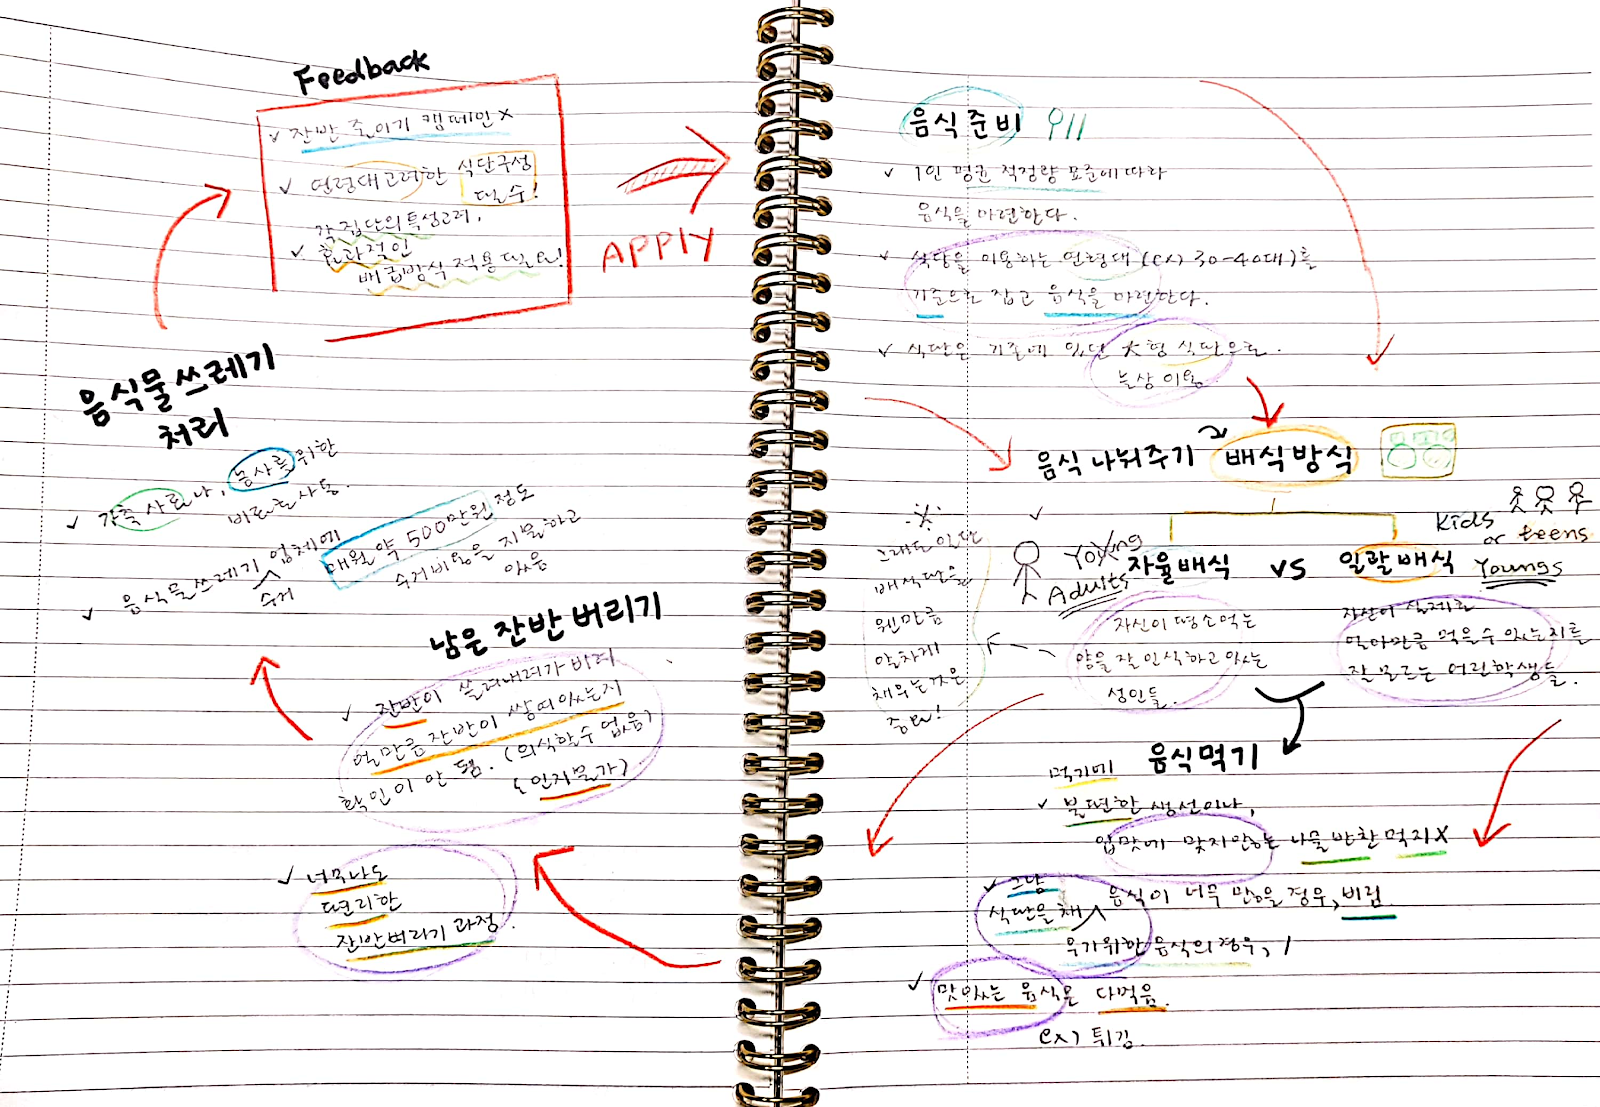 Feedback
✓ 잔반 줄이기 캠페인 X
✓ 연령대 고려한 식단구성
필수!
각 집단의 특성고려,
✓ 효과적인
배급방식 적용 필요!
APPLY
음식물 쓰레기
처리
✓ 가축 사료나, 농사를 위한
비료로 사용.
✓ 음식물 쓰레기 수거 업체에
매월 약 500만원 정도
수거비용을 지불하고
있음
남은 잔반 버리기
✓ 잔반이 쓸려내려가 버려
얼만큼 잔반이 쌓여있는지
확인이 안 됨. (의식할 수 없음,
인지불가)
✓ 너무나도
편리한
잔반버리기 과정.
음식준비
✓ 1인 평균 적정량 표준에 따라
음식을 마련한다.
✓ 식당을 이용하는 연령대 (ex) 30-40대)를
기준으로 잡고 음식을 마련한다.
✓ 식판은 기존에 있던 大형 식판으로.
늘상 이용.
음식 나눠주기 배식방식
그래도 일단
배식판을
웬만큼
알차게
채우는 것은
중요!
Young
Adults
자율배식 vs 일괄배식
Kids
or teens
Youngs
자신이 평소 먹는
양을 잘 인식하고 있는
성인들.
자신이 실제로
얼마만큼 먹을 수 있는지를
잘 모르는 어린 학생들.
음식먹기
먹기에
✓ 불편한 생선이나,
입맛에 맞지않는 나물 반찬 먹지X
✓ 그냥 음식이 너무 많을 경우, 버림
식판을 채
우기위한 음식의 경우,
✓ 맛있는 음식은 다먹음.
ex) 튀김.